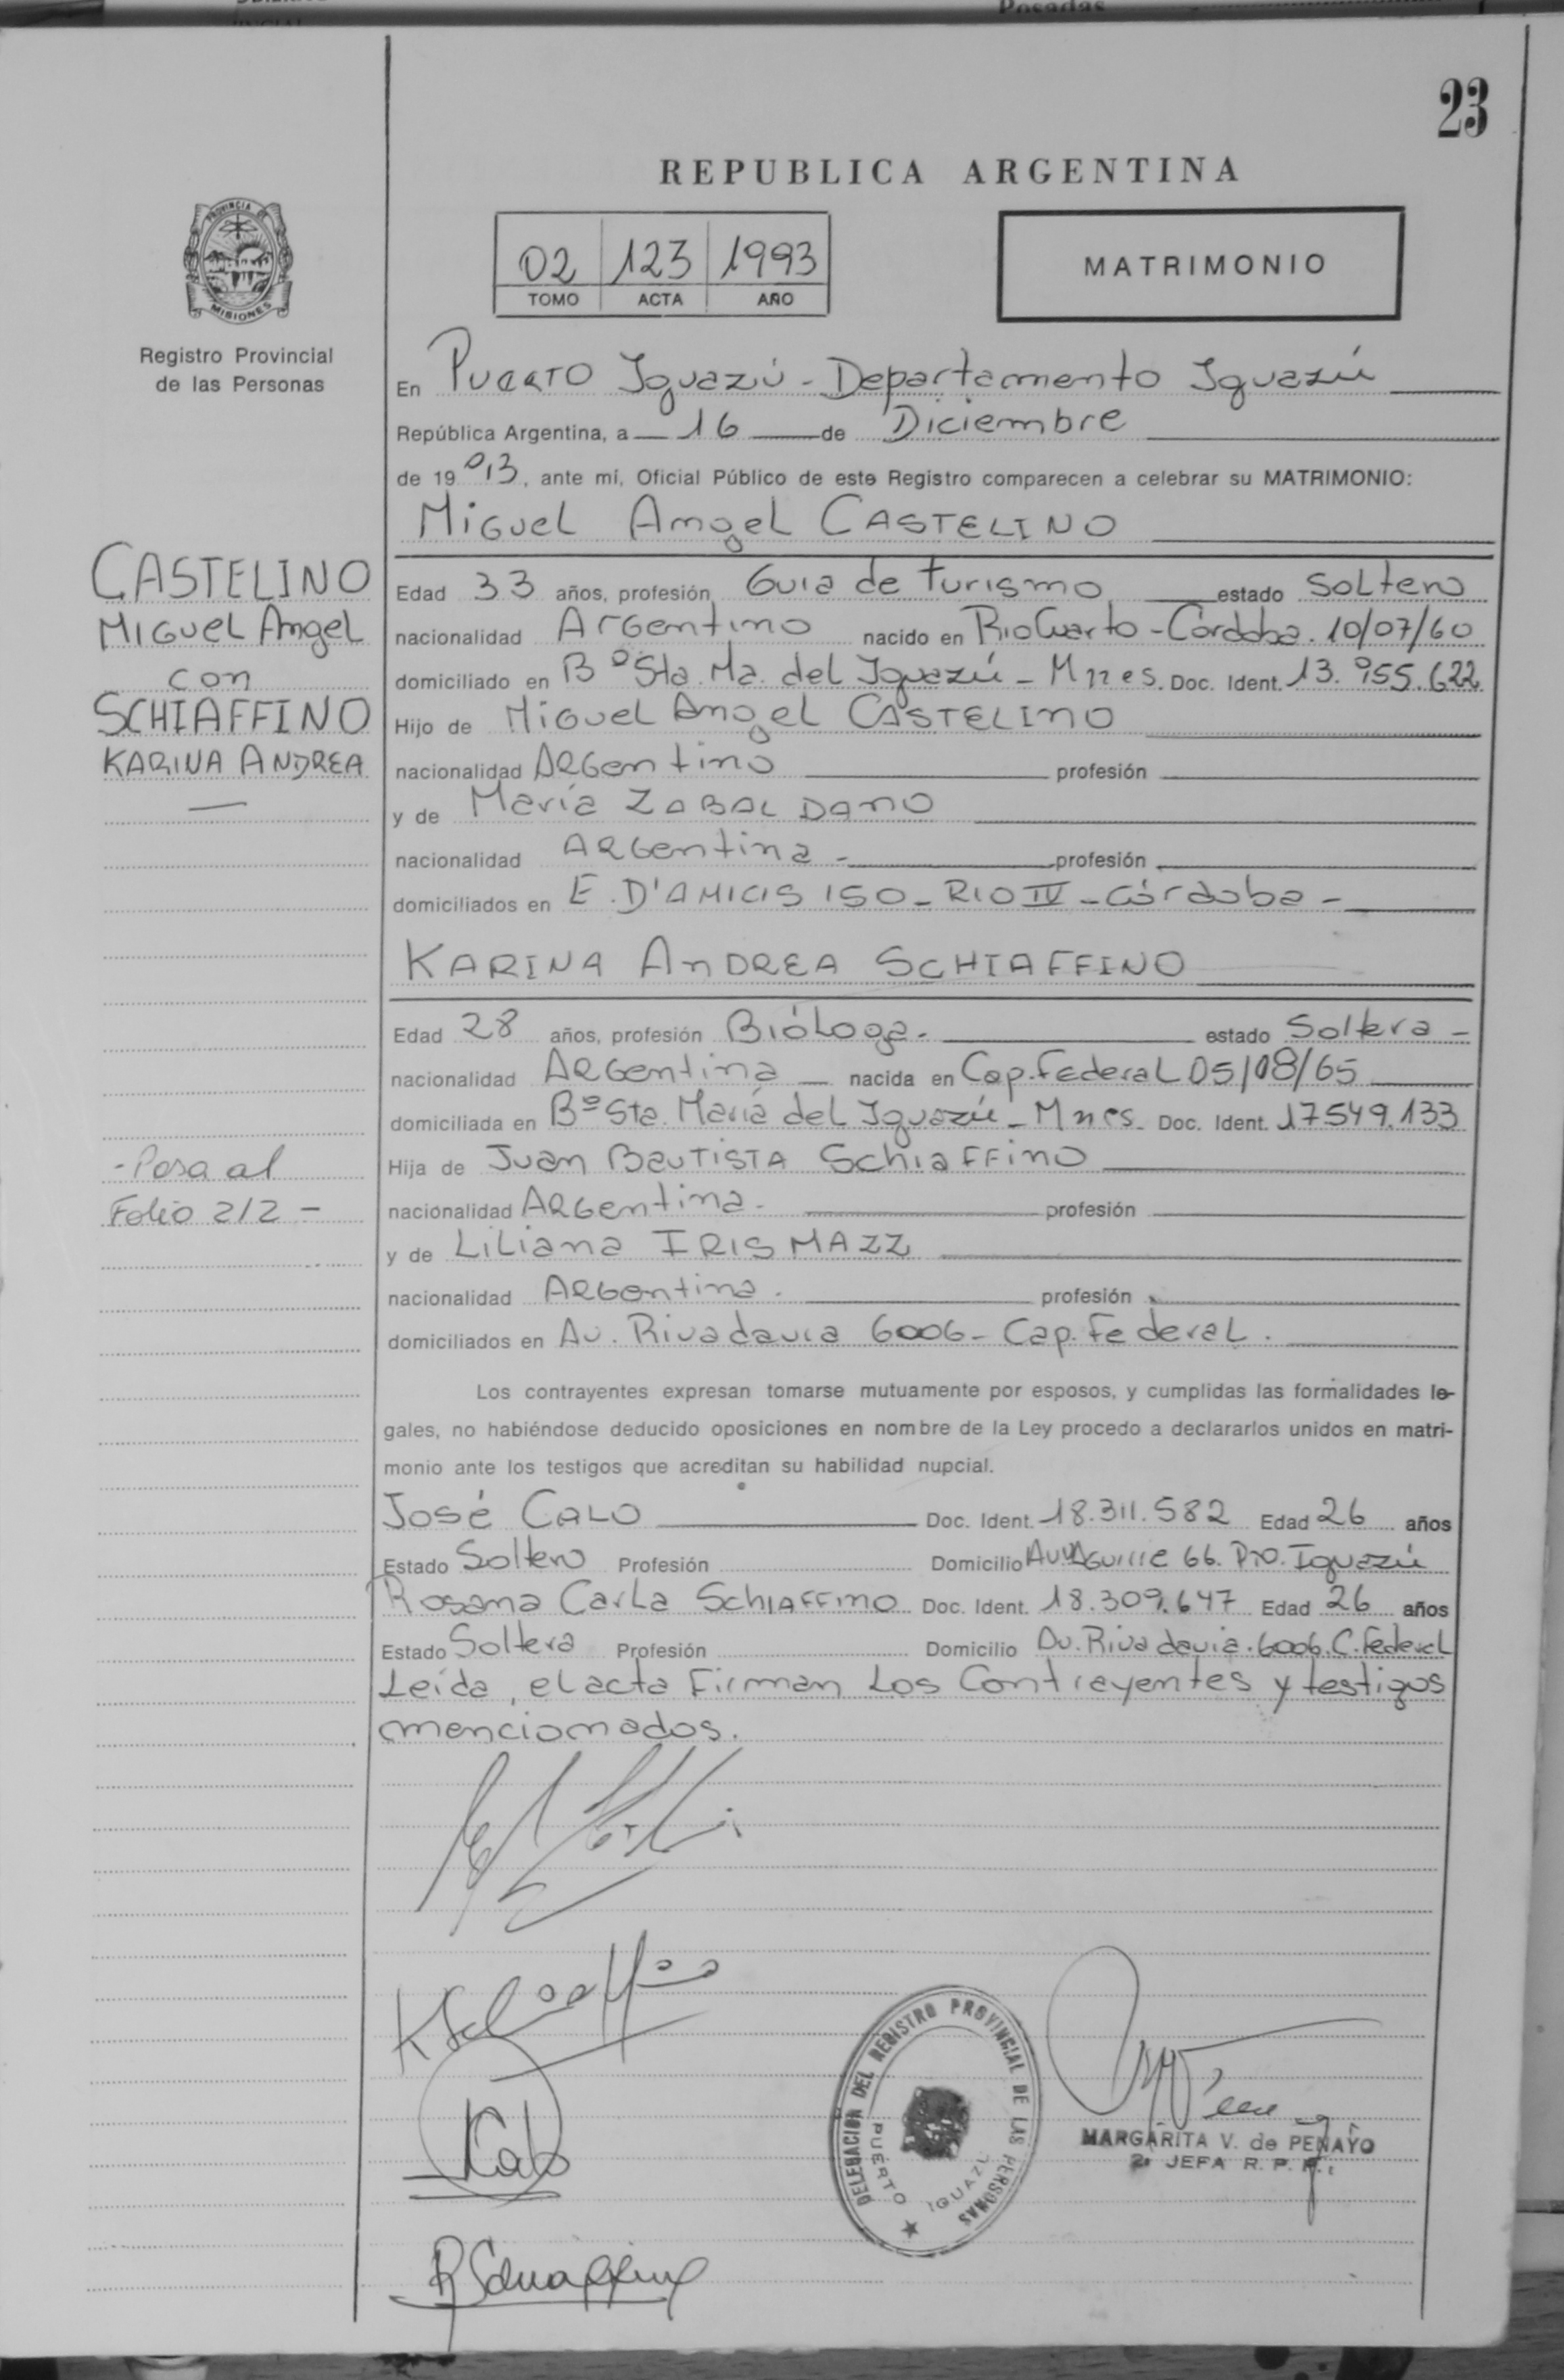 Posadas
23
REPUBLICA ARGENTINA
PROVINCIA DE
MISIONES
Registro Provincial
de las Personas
02 123 1993
TOMO ACTA AÑO
MATRIMONIO
En Puerto Iguazú - Departamento Iguazú
República Argentina, a 16 de Diciembre
de 1993, ante mí, Oficial Público de este Registro comparecen a celebrar su MATRIMONIO:
Miguel Angel CASTELINO
CASTELINO
Miguel Angel
con
SCHIAFFINO
KARINA ANDREA
Edad 33 años, profesión Guia de Turismo estado Soltero
nacionalidad Argentino nacido en Rio Cuarto - Córdoba. 10/07/60
domiciliado en Bº Sta. Ma. del Iguazú - Mnes. Doc. Ident. 13.955.622
Hijo de Miguel Angel CASTELINO
nacionalidad Argentino profesión
y de María ZABALDANO
nacionalidad Argentina - profesión
domiciliados en E. D'AMICIS 150 - RIO IV - Córdoba -
KARINA ANDREA SCHIAFFINO
Edad 28 años, profesión Bióloga - estado Soltera -
nacionalidad Argentina nacida en Cap. Federal 05/08/65
domiciliada en Bº Sta. María del Iguazú - Mnes. Doc. Ident. 17.549.133
Hija de Juan Bautista Schiaffino
nacionalidad Argentina - profesión
y de Liliana IRIS MAZZ
nacionalidad Argentina . profesión
domiciliados en Av. Rivadavia 6006 - Cap. Federal .
- Pasa al
Folio 212 -
Los contrayentes expresan tomarse mutuamente por esposos, y cumplidas las formalidades le-
gales, no habiéndose deducido oposiciones en nombre de la Ley procedo a declararlos unidos en matri-
monio ante los testigos que acreditan su habilidad nupcial.
José Calo Doc. Ident. 18.311.582 Edad 26 años
Estado Soltero Profesión Domicilio Aguirre 66. Pto. Iguazú
Rosana Carla Schiaffino Doc. Ident. 18.309.647 Edad 26 años
Estado Soltera Profesión Domicilio Av. Rivadavia. 6006. C. Federal
Leída, el acta Firman Los Contrayentes y testigos
mencionados.
K Schiaffino
Calo
R Schiaffino
DELEGACION DEL REGISTRO PROVINCIAL DE LAS PERSONAS
PUERTO IGUAZU
MARGARITA V. de PENAYO
2ª JEFA R. P. P.